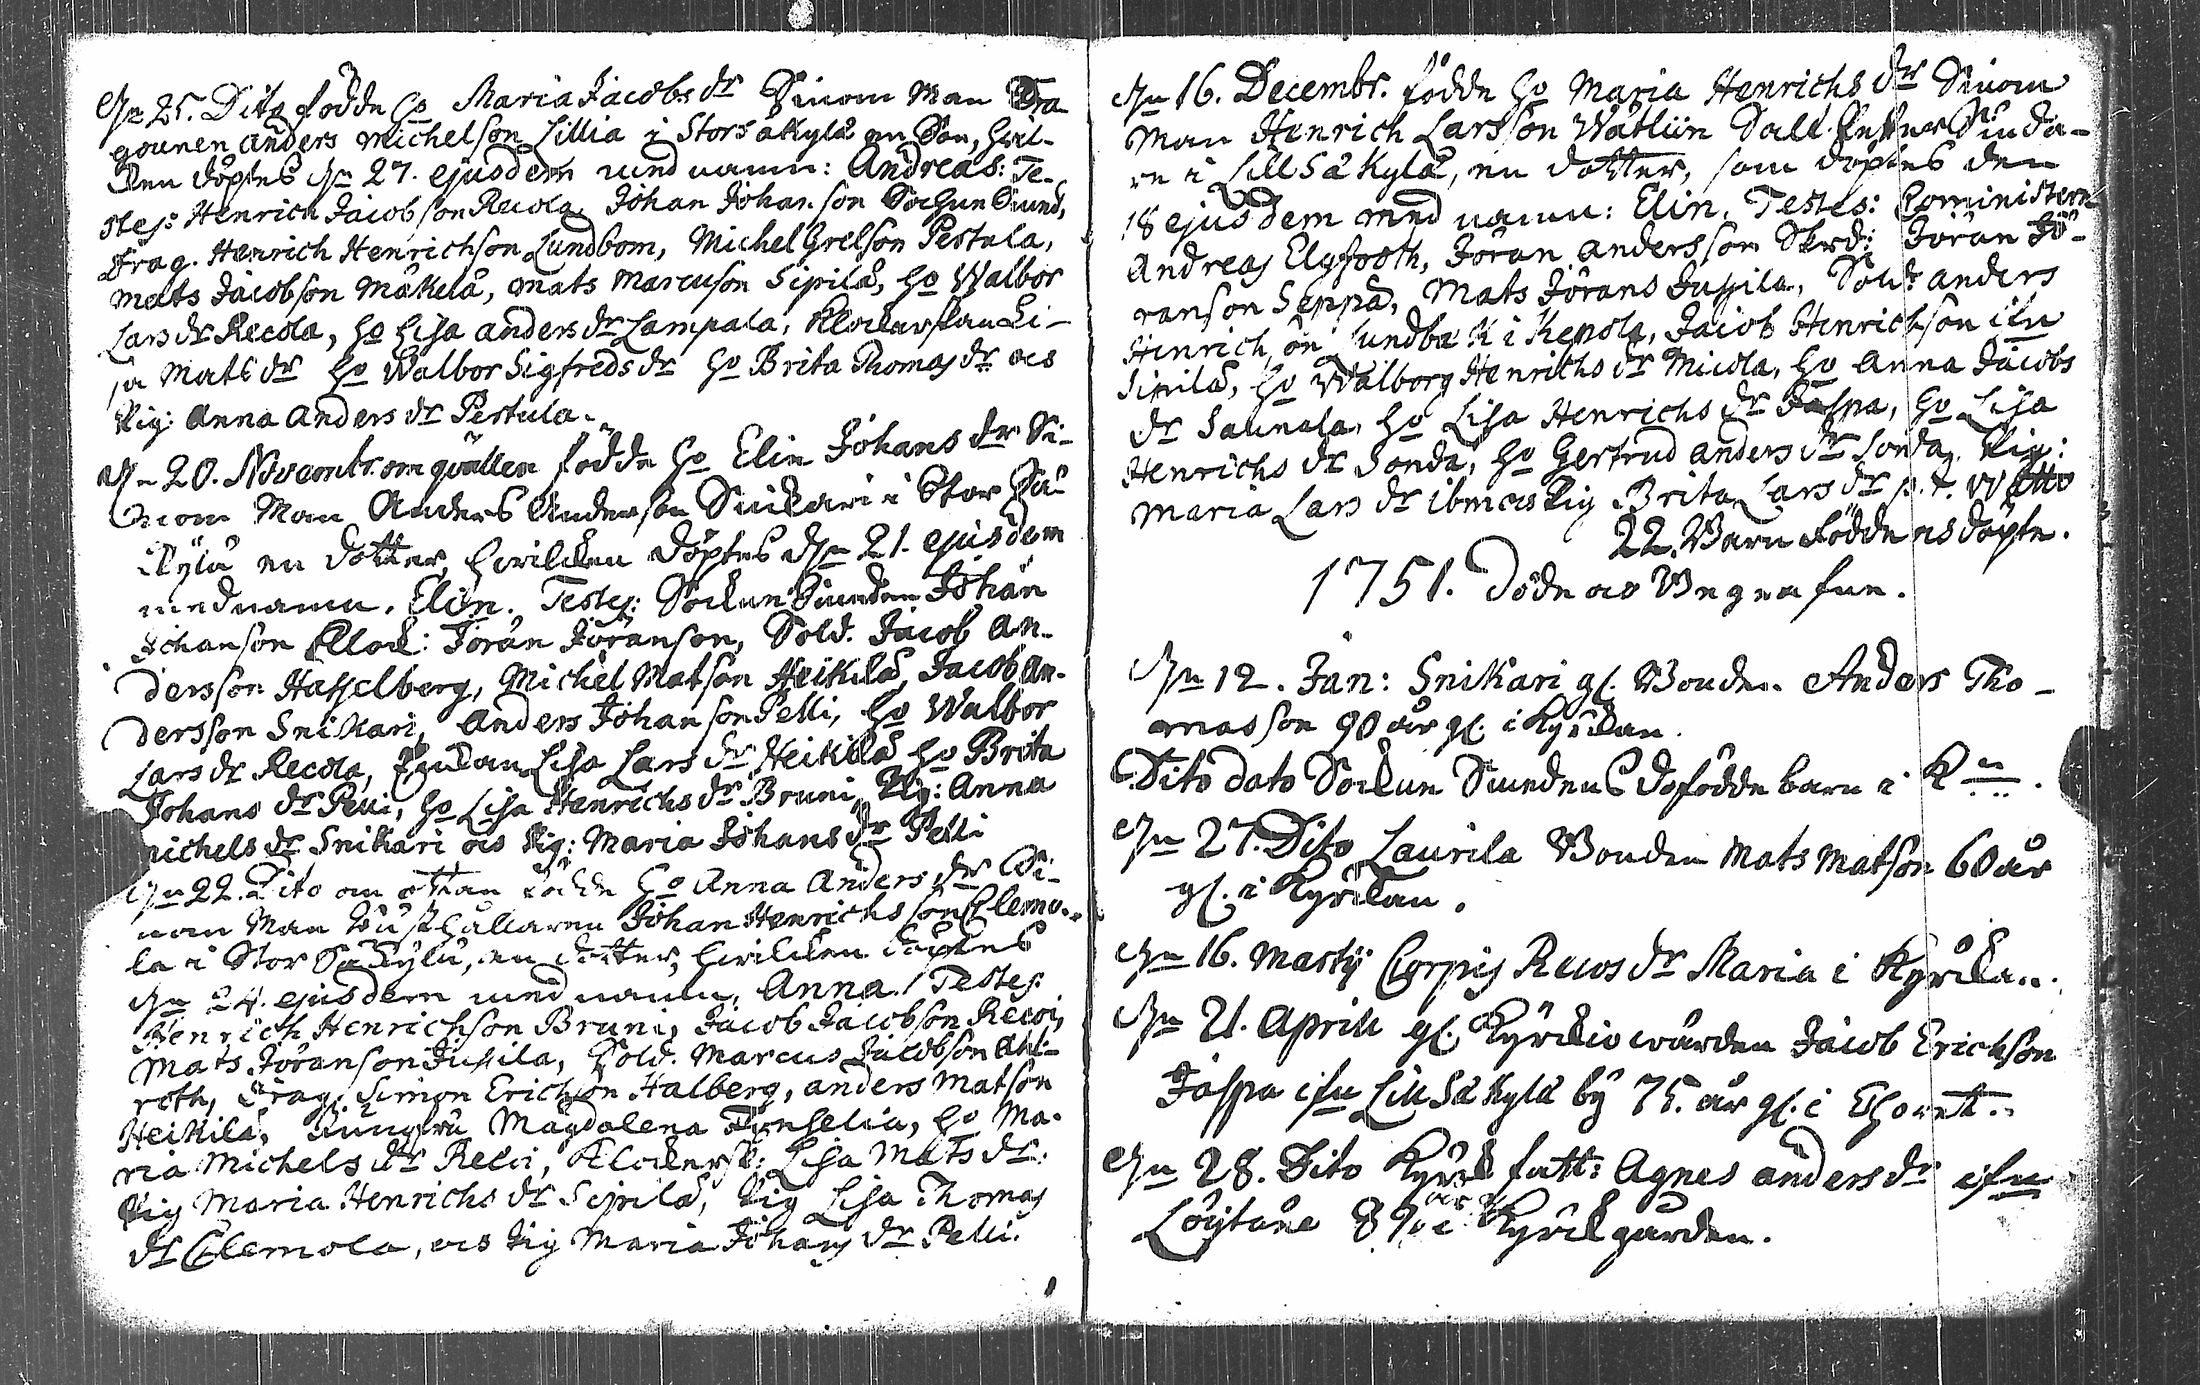 Den 25. Dito födde ho Maria Jacobs dr Sinom Man Dra
gounen Anders Michelson Lillia i Storsäkylä en Son, hvil-
ken döptes den 27. ejusdem med namn: Andreas: Te-
stes: Henrich Jacobson Recola, Johan Johanson Sochne Smed,
Drag. Henrich Henrichson Lundbom, Michel Grelson Pestula,
Mats Jacobson Mäkelä, Mats Marcuson Sipilä, ho Walbor
Lars dr Recola, ho Lisa Anders dr Lampala, Klockarskan Li-
sa Mats dr ho Walbor Sigfreds dr ho Brita Thomas dr ocs
Pig: Anna Anders dr Pestula.
den 20. Novembr. om qvällen födde ho Elin Johans dr Si-
nom Man Anders Anderson Snickari i Stor Sä-
kylä en dotter, hvilcken döptes den 21. ejusdem
med namn. Elin. Testes: Sockne Smeden Johan
Johanson Klock: Jöran Jöranson, Sold. Jacob An-
dersson Hasselberg, Michel Matson Heikilä, Jacob An-
dersson Snikari, Anders Johanson Pelli, ho Walbor
Lars dr Recola, Lisa Lars dr Heikilä ho Brita
Johans dr Pelli, ho Lisa Henrichs dr Bruni, Pig: Anna
Michels dr Snikari ocs Pig: Maria Johans dr Pelli
den 22. Dito om ottan födde ho Anna Anders dr Si-
nom Man Rusthållaren Johan Henrichsson Clemo-
la i Stor Säkylä, en dotter, hvilcken döptes
den 24. ejusdem med namn, Anna. Testes:
Henrich Henrichson Bruni, Jacob Jacobson Recoi,
Mats Jöranson Jussila, Sold. Marcus Jacobson Ahl-
roth, Drag. Simon Erichson Halberg, Anders Matson
Heikilä, Jungfru Magdalena ho Ma-
ria Michels dr Reloi, Klockarsk: Lisa Mats dr:
Pig Maria Henrichs dr Sipilä, Pig Lisa Thomas
dr Clemola, ocs Pig Maria Johans dr Pelli.
den 16. Decembr. födde ho Maria Henrichs dr Sinom
Man Henrich Larsson Wätliin Salt. Sjuda-
re i Lill Säkylä, en dotter, som döptes den
18 ejusdem med namn: Elin. Testes: Cominister
Andreas Elgfooth, Jöran Andersson Skrd: Jöran Jö-
ranson Seppä, Mats Jörans Jussila, Sold: Anders
Henrichson Lundbäck i Kepola, Jacob Henrichson ifrn
Sipilä, ho Walborg Henrichs dr Micola, ho Anna Jacobs
dr Saunala, ho Lisa Henrichs dr Jaspa, ho Lisa
Henrichs dr Sonda, ho Gertrud Anders dr Sonda, Pig:
Maria Lars dr ibm ocs Pig Brita Lars dr p. t.
22. Barn Födde ocs döpte.
1751. Döde ocs Begrafne.
den 12. Jan: Snikari gl. Bonden Anders Tho-
masson 90 år gl. i Kyrckan.
Dito dato Sockne Smedens dofödde barn i K n.
den 27. Dito Laurila Bonden Mats Matson 60 år
gl. i Kyrckan.
den 16. Martij Corpis Rewos dr Maria i Kyrckan.
den 21. Aprill gl. Kyrckiowärden Jacob Erichson
Jaspa ifrn Lill Säkylä by 75. år gl. i Choret.
den 28. Dito Kyrck fatt: Agnes Anders dr ifrn
Löytäne 89 år i Kyrckgården.